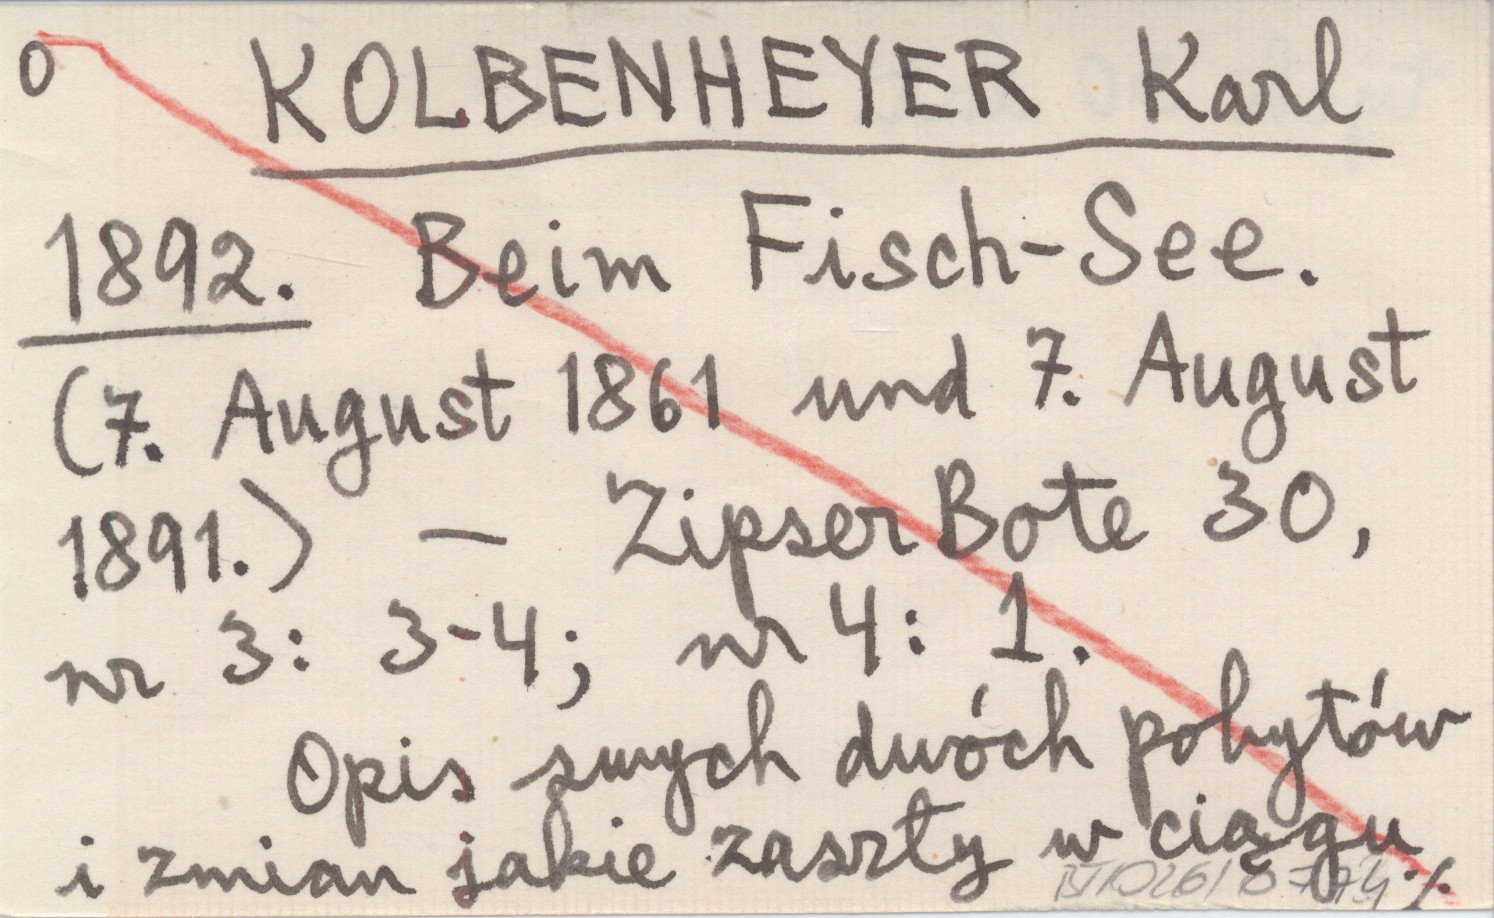 o KOLBENHEYER Karl
1892. Beim Fisch-See.
(7. August 1861 und 7. August
1891.) — Zipser Bote 30,
nr 3: 3-4; nr 4: 1.
Opis swych dwóch pobytów
i zmian jakie zaszły w ciągu ./.